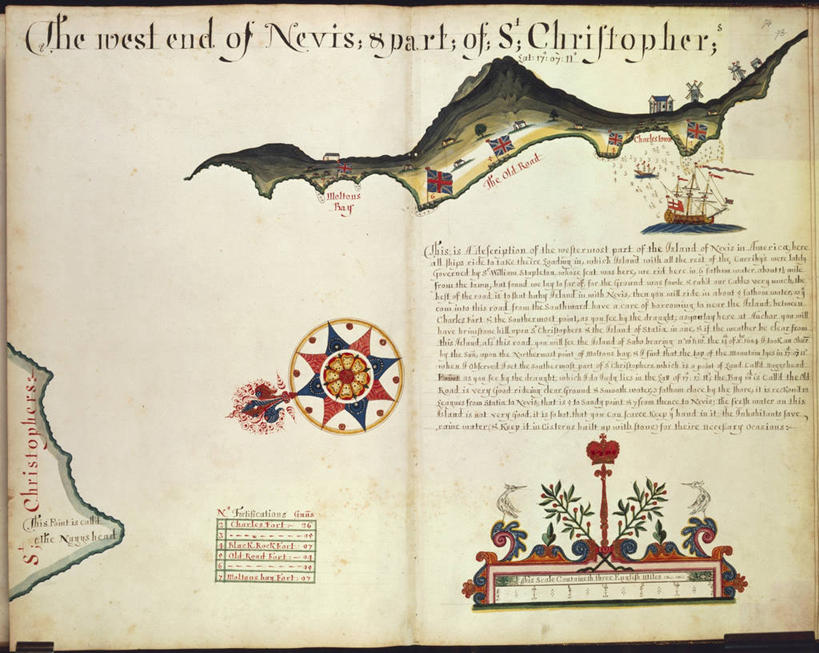 The west end of Nevis; & part; of; St; Christopher;s
Lat: 17: 07: 11
Charlestown
The Old Road
Moltons
Bay
This is A description of the westermost part of the Island of Nevis in America, here
all ships ride to take theire Loading in, which Island with all the rest of the Carribys were lately
Governed by Sr William Stapleton, whose seat was here, we rid here in 6 fathom water, about 1½ mile
from the town, but found we lay to far of, for the Ground was foule & rubd our Cables very much, the
best of the road is to shut baby Island in with Nevis, then you will ride in about 4 fathom water, as you
com into this road from the Southward have a care of borrowing to near the Island, between
Charles Fort & the Southermost point, as you see by the draught; as you lay here at Anchor, you will
have brimstone hill upon St Christophers & the Island of Statia in one, & if the weather be clear from
this Island, als this road, you will see the Island of Saba bearing
by the Sun, upon the Northermost point of Moltons bay, & I find that the top of the Mountain lyes in
when I Observed I set the southermost part of St Christophers which is a point of Land Calld
as you see by the draught, which I do Judg lyes in the Lat of 17: the Bay is Calld the Old
Road is very good riding clear Ground & Smooth water, 5 fathom close by the shore; it is reckoned
Leagues from Statia to Nevis, that is 4 to Sandy point & 7 from thence to Nevis; the fresh water on this
Island is not very good, it is so hot, that you Can scarce Keep yr hand in it; the Inhabitants save
raine water, & Keep it in Cisterns built up with stone, for theire necessary Ocasions:~
St; Christophers:~
This Point is calld
the Naggs head
No Fortifications Guns
2 Charles Fort :~ 26
3
4 Black Rock Fort : 07
5 Old Road Fort :~ 04
6
7 Moltons bay Fort : 07
This Scale Containeth three English Miles